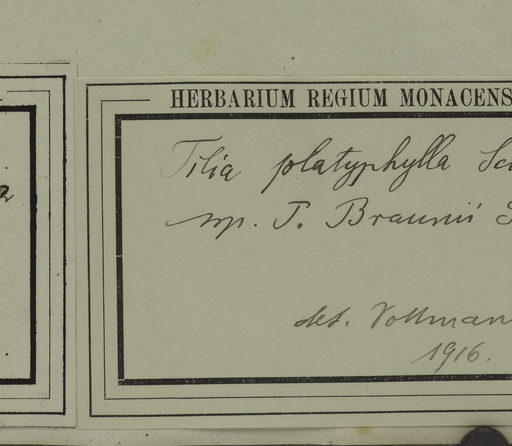 HERBARIUM REGIUM MONACENS
Tilia platyphylla Sc
sp. T. Braunii S
det. Vollmann
1916.